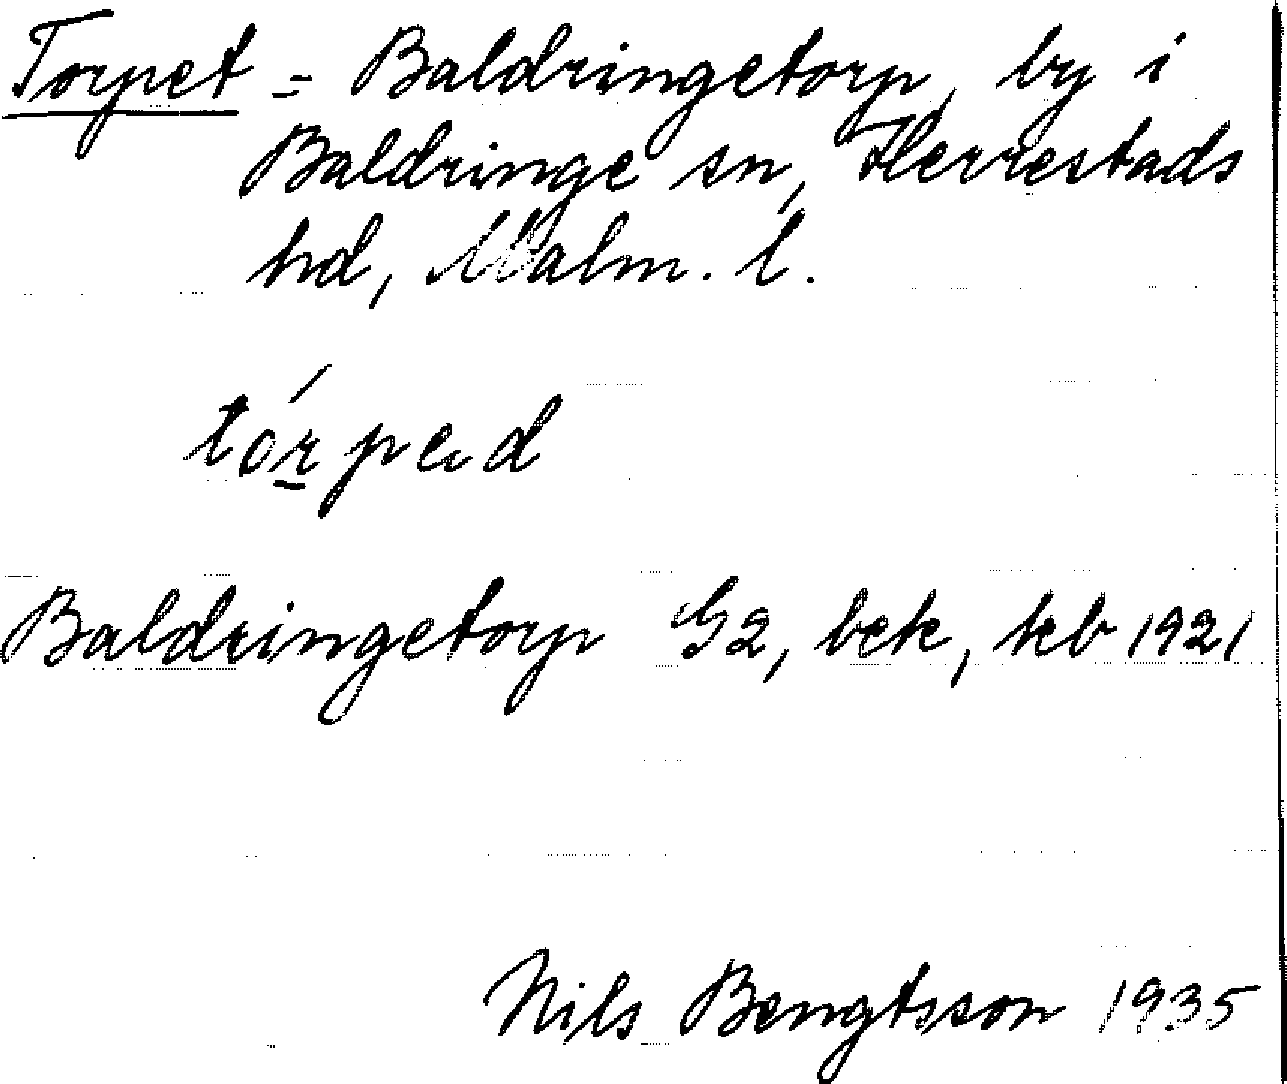 Torpet = Baldringetorp, by i
Baldringe sn, Herrestads
hd, Malm. l.
tórped
Baldringetorp G2, bek, kb 1921
Nils Bengtsson 1935